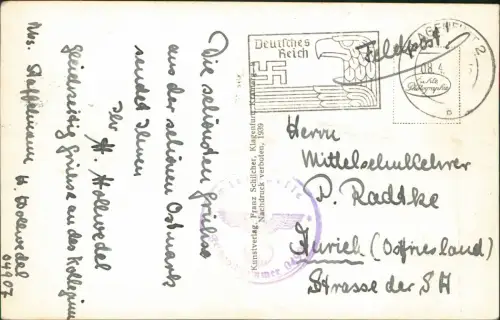 Deutsches
Reich
KLAGENFURT 2
08.4
Feldpost!
Die schönsten Grüße
aus der schönen Ostmark
sendet Ihnen
Ihr H. Hollwedel
Gleichzeitig Grüsse an das Kollegium
Abs.
H. Hollwedel
04907
Kunstverlag, Franz Schilcher, Klagenfurt, Kärnten
Nachdruck verboten, 1939
Herrn
Mittelschullehrer
P. Radtke
Aurich (Ostfriesland)
Strasse der SA